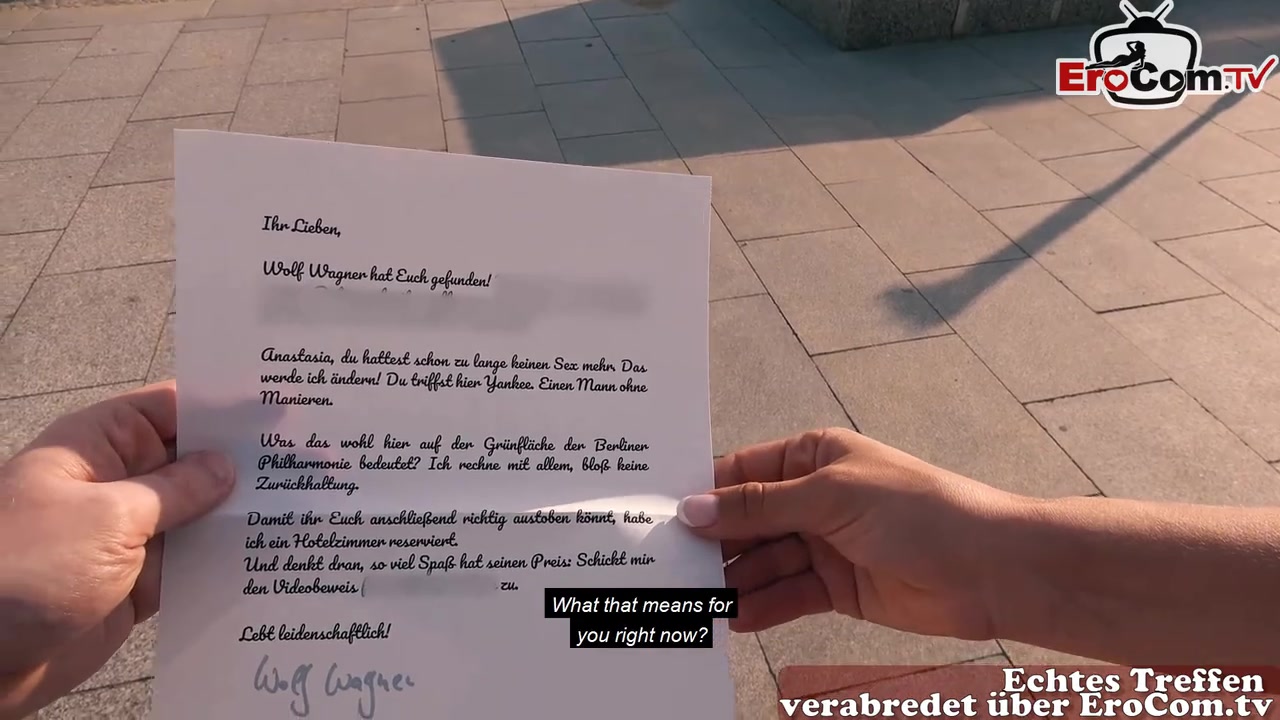 EroCom.TV
Ihr Lieben,
Wolf Wagner hat Euch gefunden!
Anastasia, du hattest schon zu lange keinen Sex mehr. Das
werde ich ändern! Du triffst hier Yankee. Einen Mann ohne
Manieren.
Was das wohl hier auf der Grünfläche der Berliner
Philharmonie bedeutet? Ich rechne mit allem, bloß keine
Zurückhaltung.
Damit ihr Euch anschließend richtig austoben könnt, habe
ich ein Hotelzimmer reserviert.
Und denkt dran, so viel Spaß hat seinen Preis: Schickt mir
den Videobeweis zu.
Lebt leidenschaftlich!
Wolf Wagner
What that means for
you right now?
Echtes Treffen
verabredet über EroCom.tv